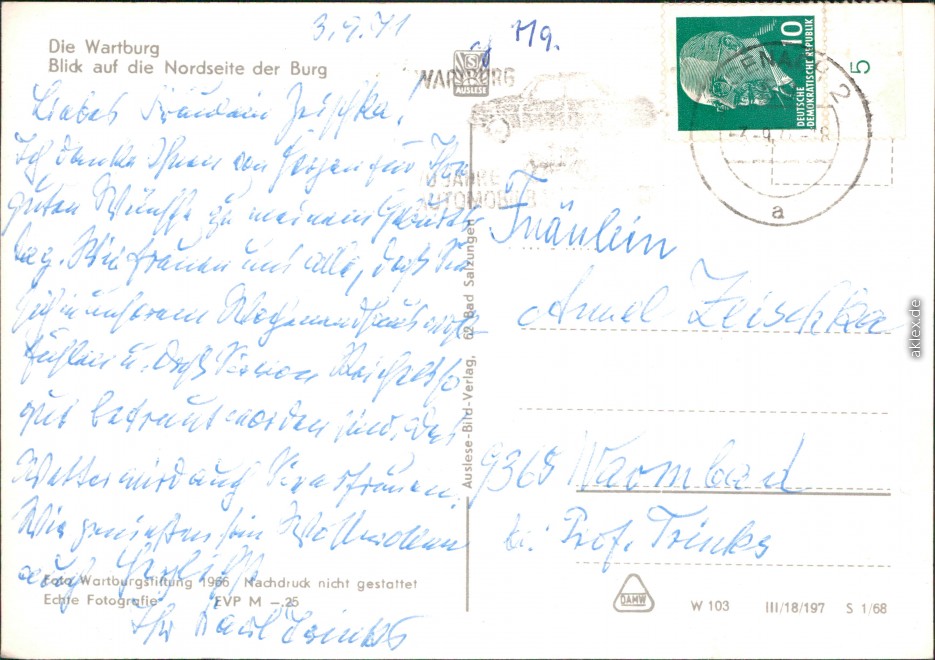 3.9.71
M9.
Die Wartburg
Blick auf die Nordseite der Burg
Liebes Fräulein Zeischka,
Ich danke Ihnen von Herzen für Ihre
guten Wünsche zu meinem Geburts-
tag. Wir freuen uns alle, daß Sie
sich in unserem Wochenendhaus wohl
fühlen u. daß Sie von Reichelt so
gut betreut worden sind. Das
Wetter wird auch Sie erfreuen.
Wir genießen im
auch Herzlichst
Ihr Karl Trinks
Foto Wartburgstiftung 1966 Nachdruck nicht gestattet
Echte Fotografie EVP M -.25
Auslese-Bild-Verlag, 62 Bad Salzungen
AUSLESE
WARTBURG
JAHRE
AUTOMOBILE
10
DEUTSCHE
DEMOKRATISCHE REPUBLIK
5
2
a
Fräulein
Annel Zeischka
9365 Warmbad
bei Prof. Trinks
DAMW
W 103 III/18/197 S 1/68
aklex.de